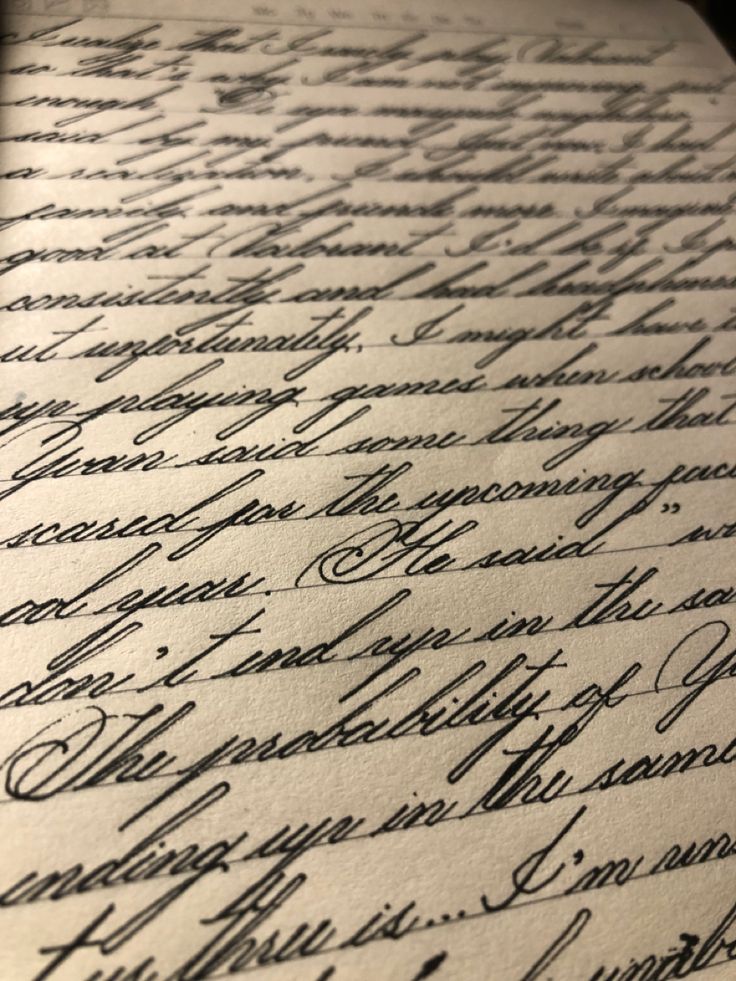 I realize that I rarely play Valorant
so that's why I am not improving good
enough.
said by my friend. Just now I had
a realization. I should write about m
family and friends more. I imagine
good at Valorant I'd be if I p
consistently and had headphones
ut unfortunately, I might have t
up playing games when school
Yvan said some thing that
scared for the upcoming fuc
ool year. He said " w
don't end up in the sa
The probability of Y
ending up in the same
us three is... I'm un